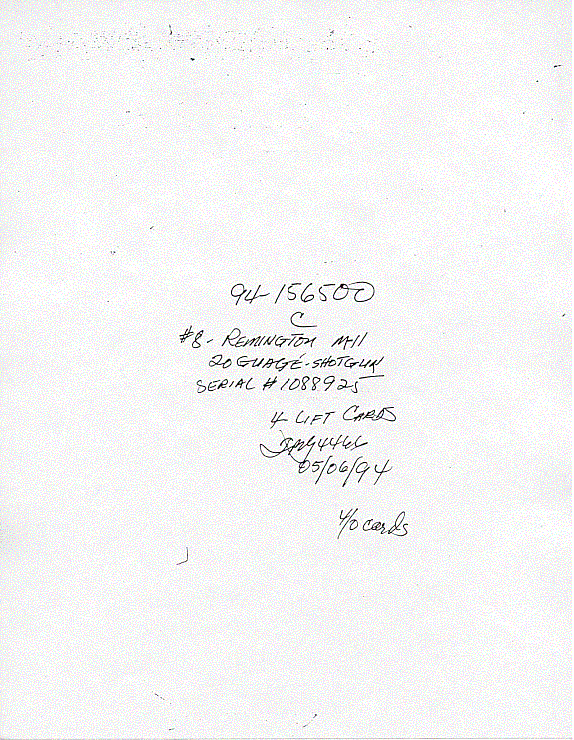 94-156500
C
#8- REMINGTON M-11
20 GUAGE-SHOTGUN
SERIAL # 1088925
4 LIFT CARDS
05/06/94
4/0 cards